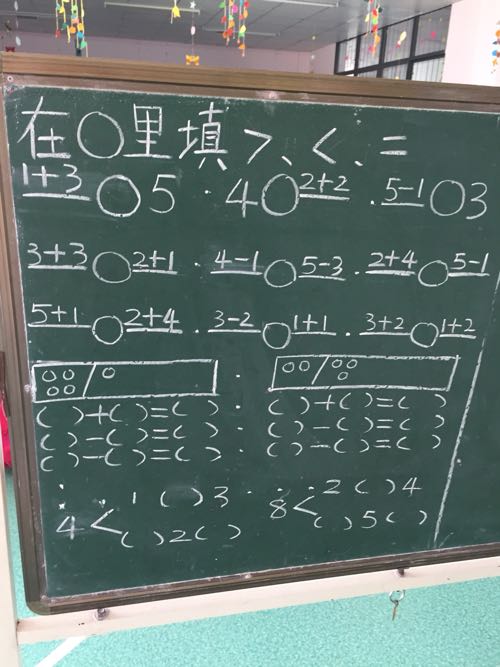 在○里填>、<、=
1+3○5 · 4○2+2 · 5-1○3
3+3○2+1 · 4-1○5-3 · 2+4○5-1
5+1○2+4 · 3-2○1+1 · 3+2○1+2
( )+( )=( ) · ( )+( )=( )
( )-( )=( ) · ( )-( )=( )
( )-( )=( ) · ( )-( )=( )
1 ( ) 3 2 ( ) 4
4< 8<
( ) 2 ( ) ( ) 5 ( )